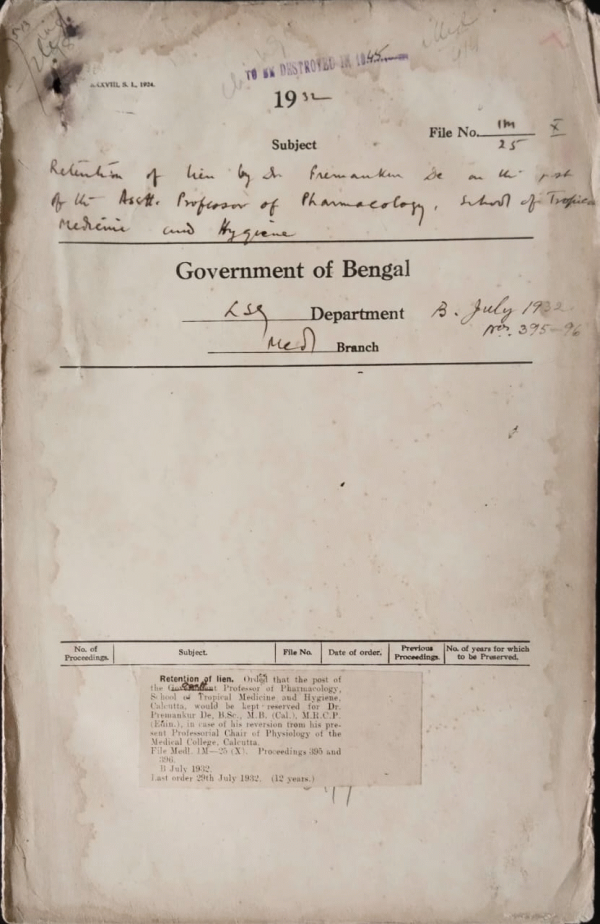 XXVIII, S. L., 1924.
TO BE DESTROYED IN 1945
1932
File No. 1M/25 X
Subject
Retention of lien by Dr Premankur De on the post
of the Asstt. Professor of Pharmacology, School of Tropical
Medicine and Hygiene
Government of Bengal
LSG Department B. July 1932
Nos. 395-96
Medl Branch
No. of Proceedings. Subject. File No. Date of order. Previous Proceedings. No. of years for which to be Preserved.
Retention of lien. Order that the post of
the Professor of Pharmacology,
School of Tropical Medicine and Hygiene,
Calcutta, would be kept reserved for Dr.
Premankur De, B.Sc., M.B. (Cal.), M.R.C.P.
(Edin.), in case of his reversion from his pre-
sent Professorial Chair of Physiology of the
Medical College, Calcutta.
File Medl. 1M—25 (X). Proceedings 395 and
396.
B July 1932.
Last order 29th July 1932. (12 years.)